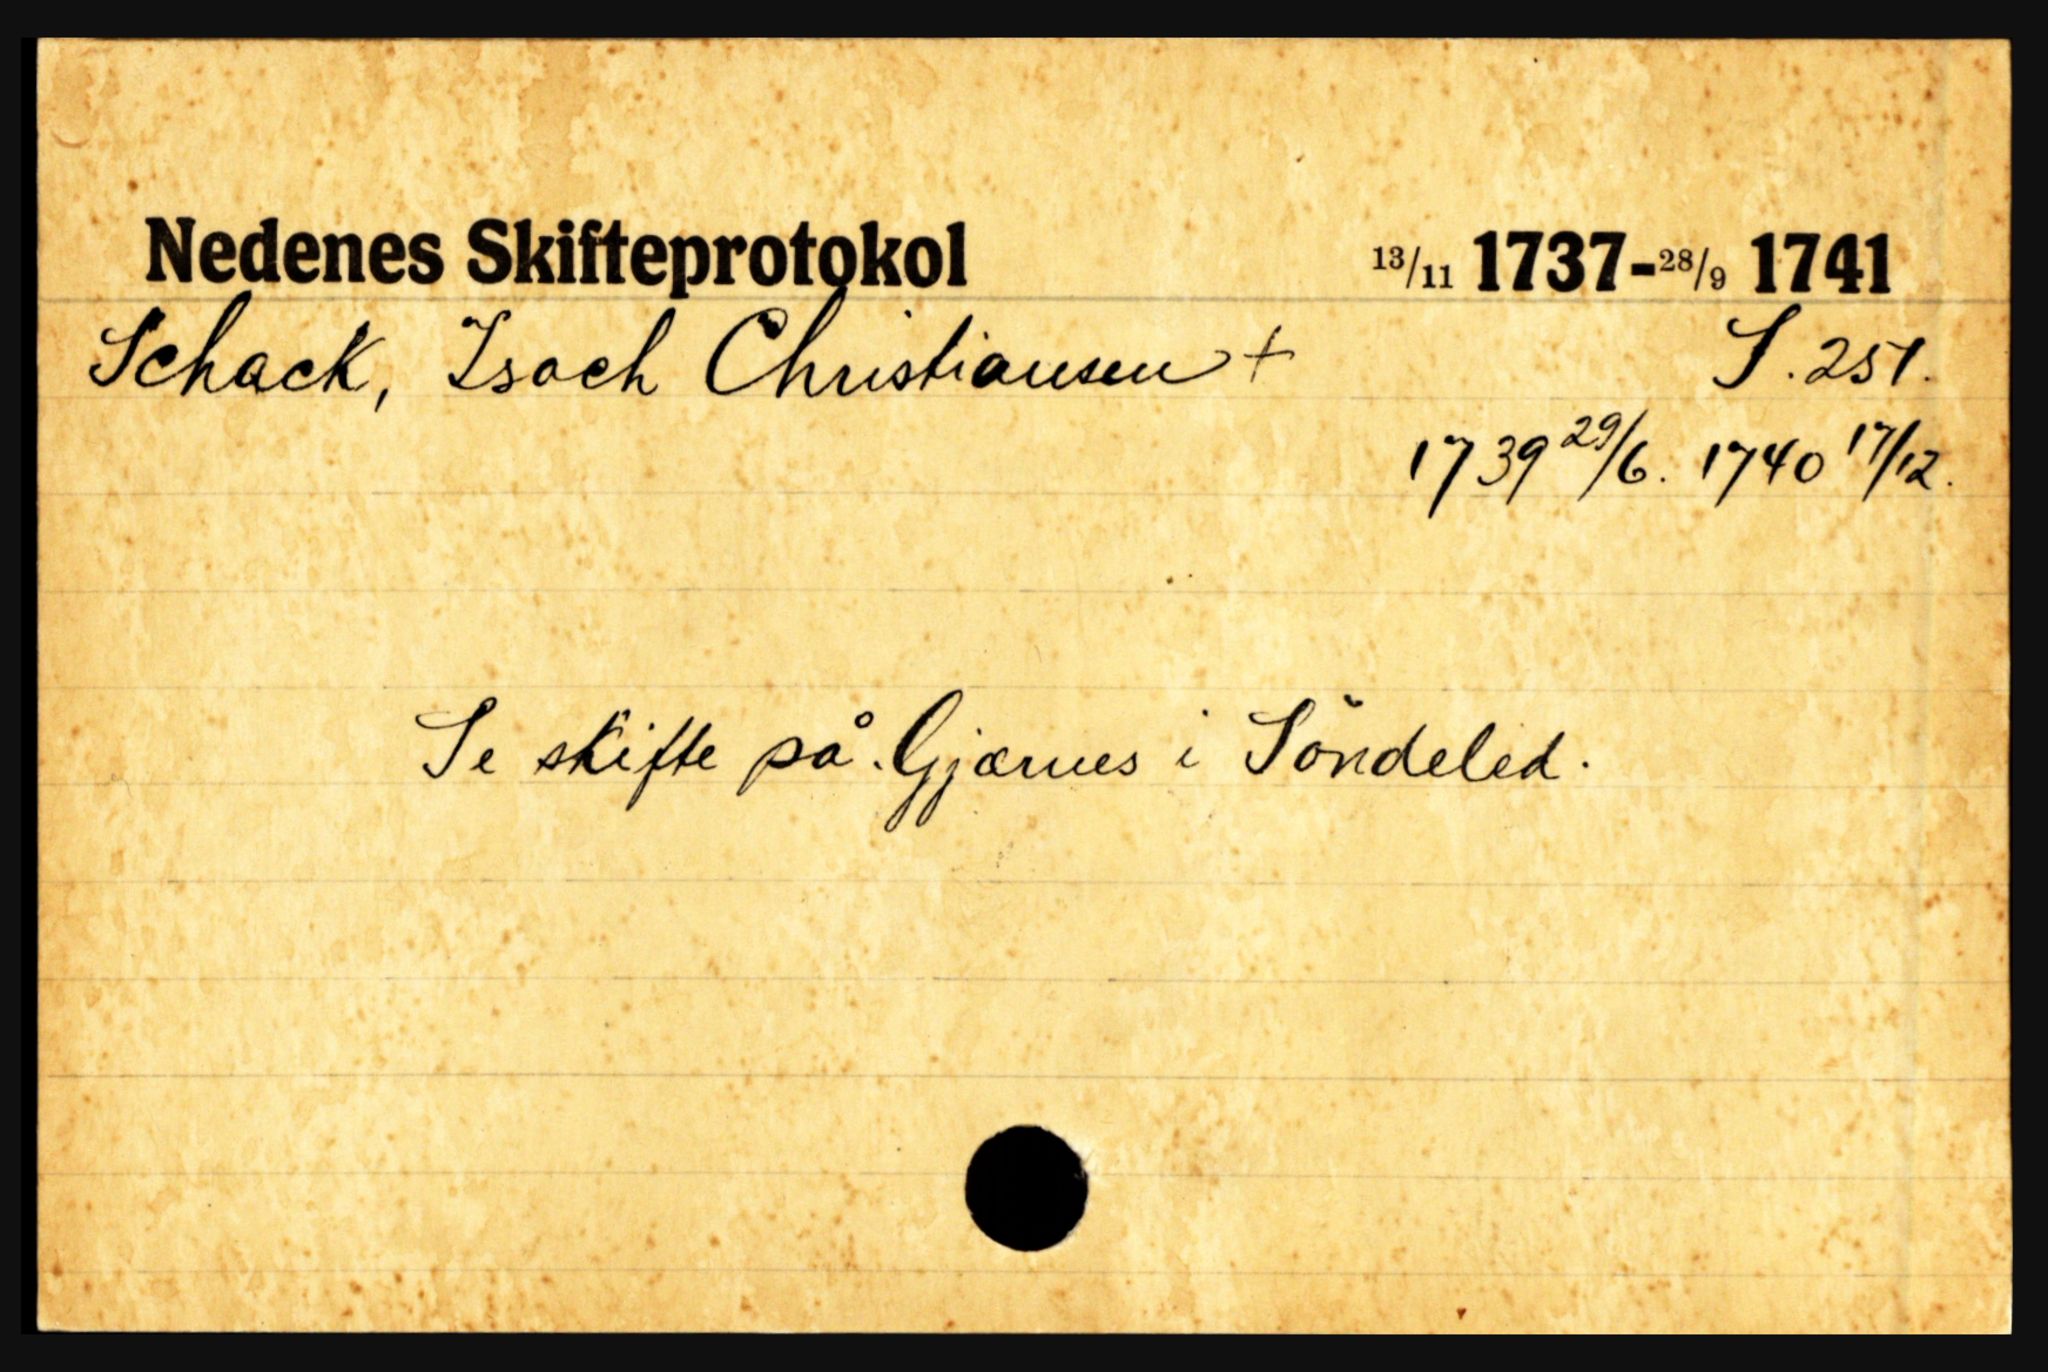 Nedenes Skifteprotokol 13/11 1737-28/9 1741
Schack, Isach Christiansen + S. 251.
1739 29/6. 1740 17/12.
Se skifte på Gjærnes i Söndeled.